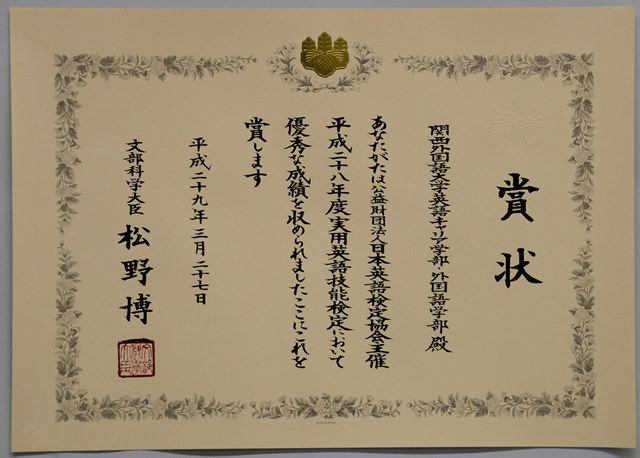 賞状
関西外国語大学英語キャリア学部・外国語学部 殿
あなたがたは公益財団法人日本英語検定協会主催
平成二十八年度実用英語技能検定において
優秀な成績を収められましたここにこれを
賞します
平成二十九年三月二十七日
文部科学大臣 松野博